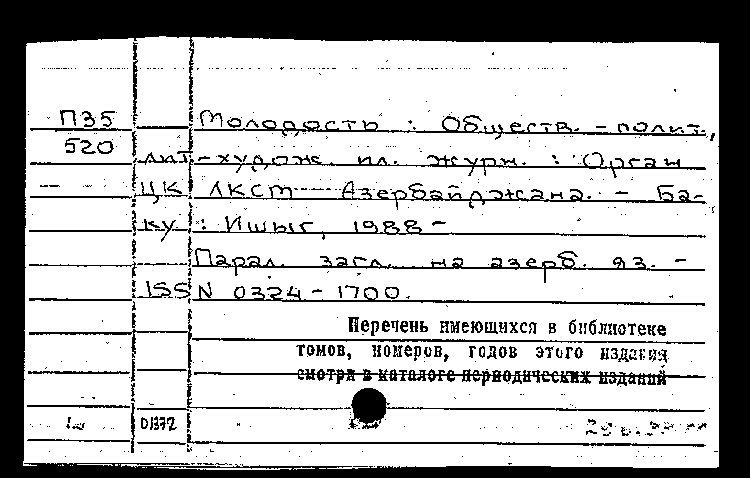 П35 Молодость : Обществ. - полит.,
520 лит-худож. ил. журн. : Орган
-- - ЦК ЛКСМ Азербайджана. - Ба-
ку : Ишыг, 1988 -
Парал. загл. на азерб. яз. -
ISSN 0324-1700.
Перечень имеющихся в библиотеке
томов, номеров, годов этого издания
смотри в каталоге периодических изданий